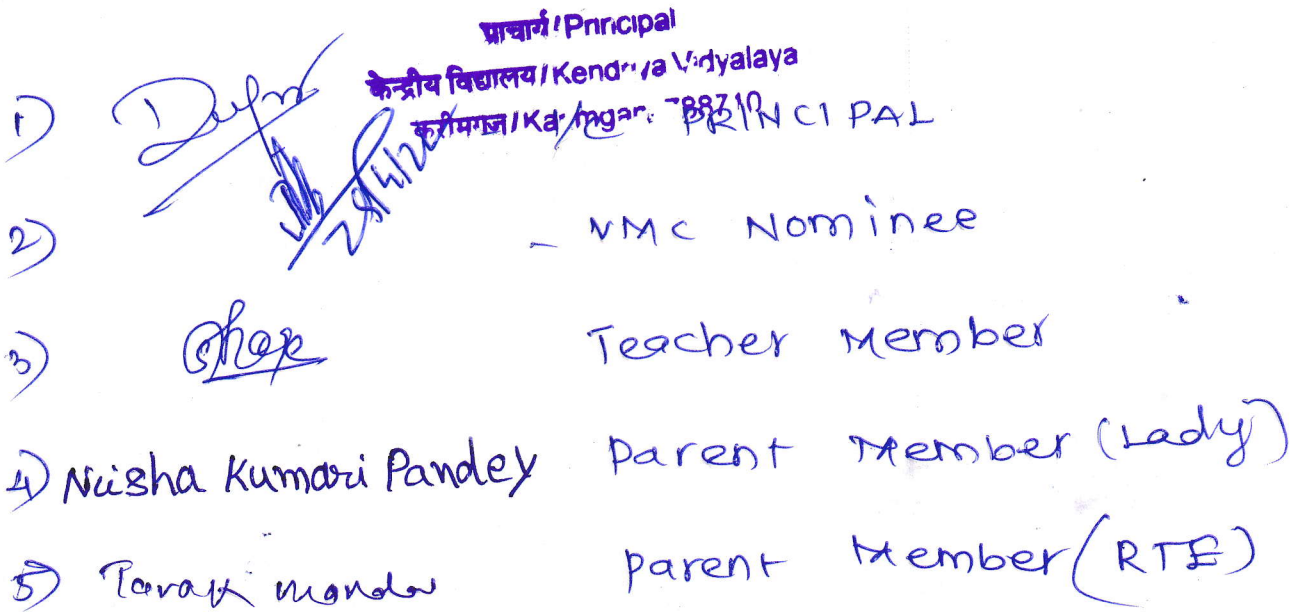 प्राचार्य/Principal
केन्द्रीय विद्यालय/Kendriya Vidyalaya
करीमगंज/Karimganj
1) I/C PRINCIPAL
2) - VMC Nominee
3) Teacher Member
4) Nisha Kumari Pandey Parent Member (Lady)
5) Tarak Parent Member (RTE)